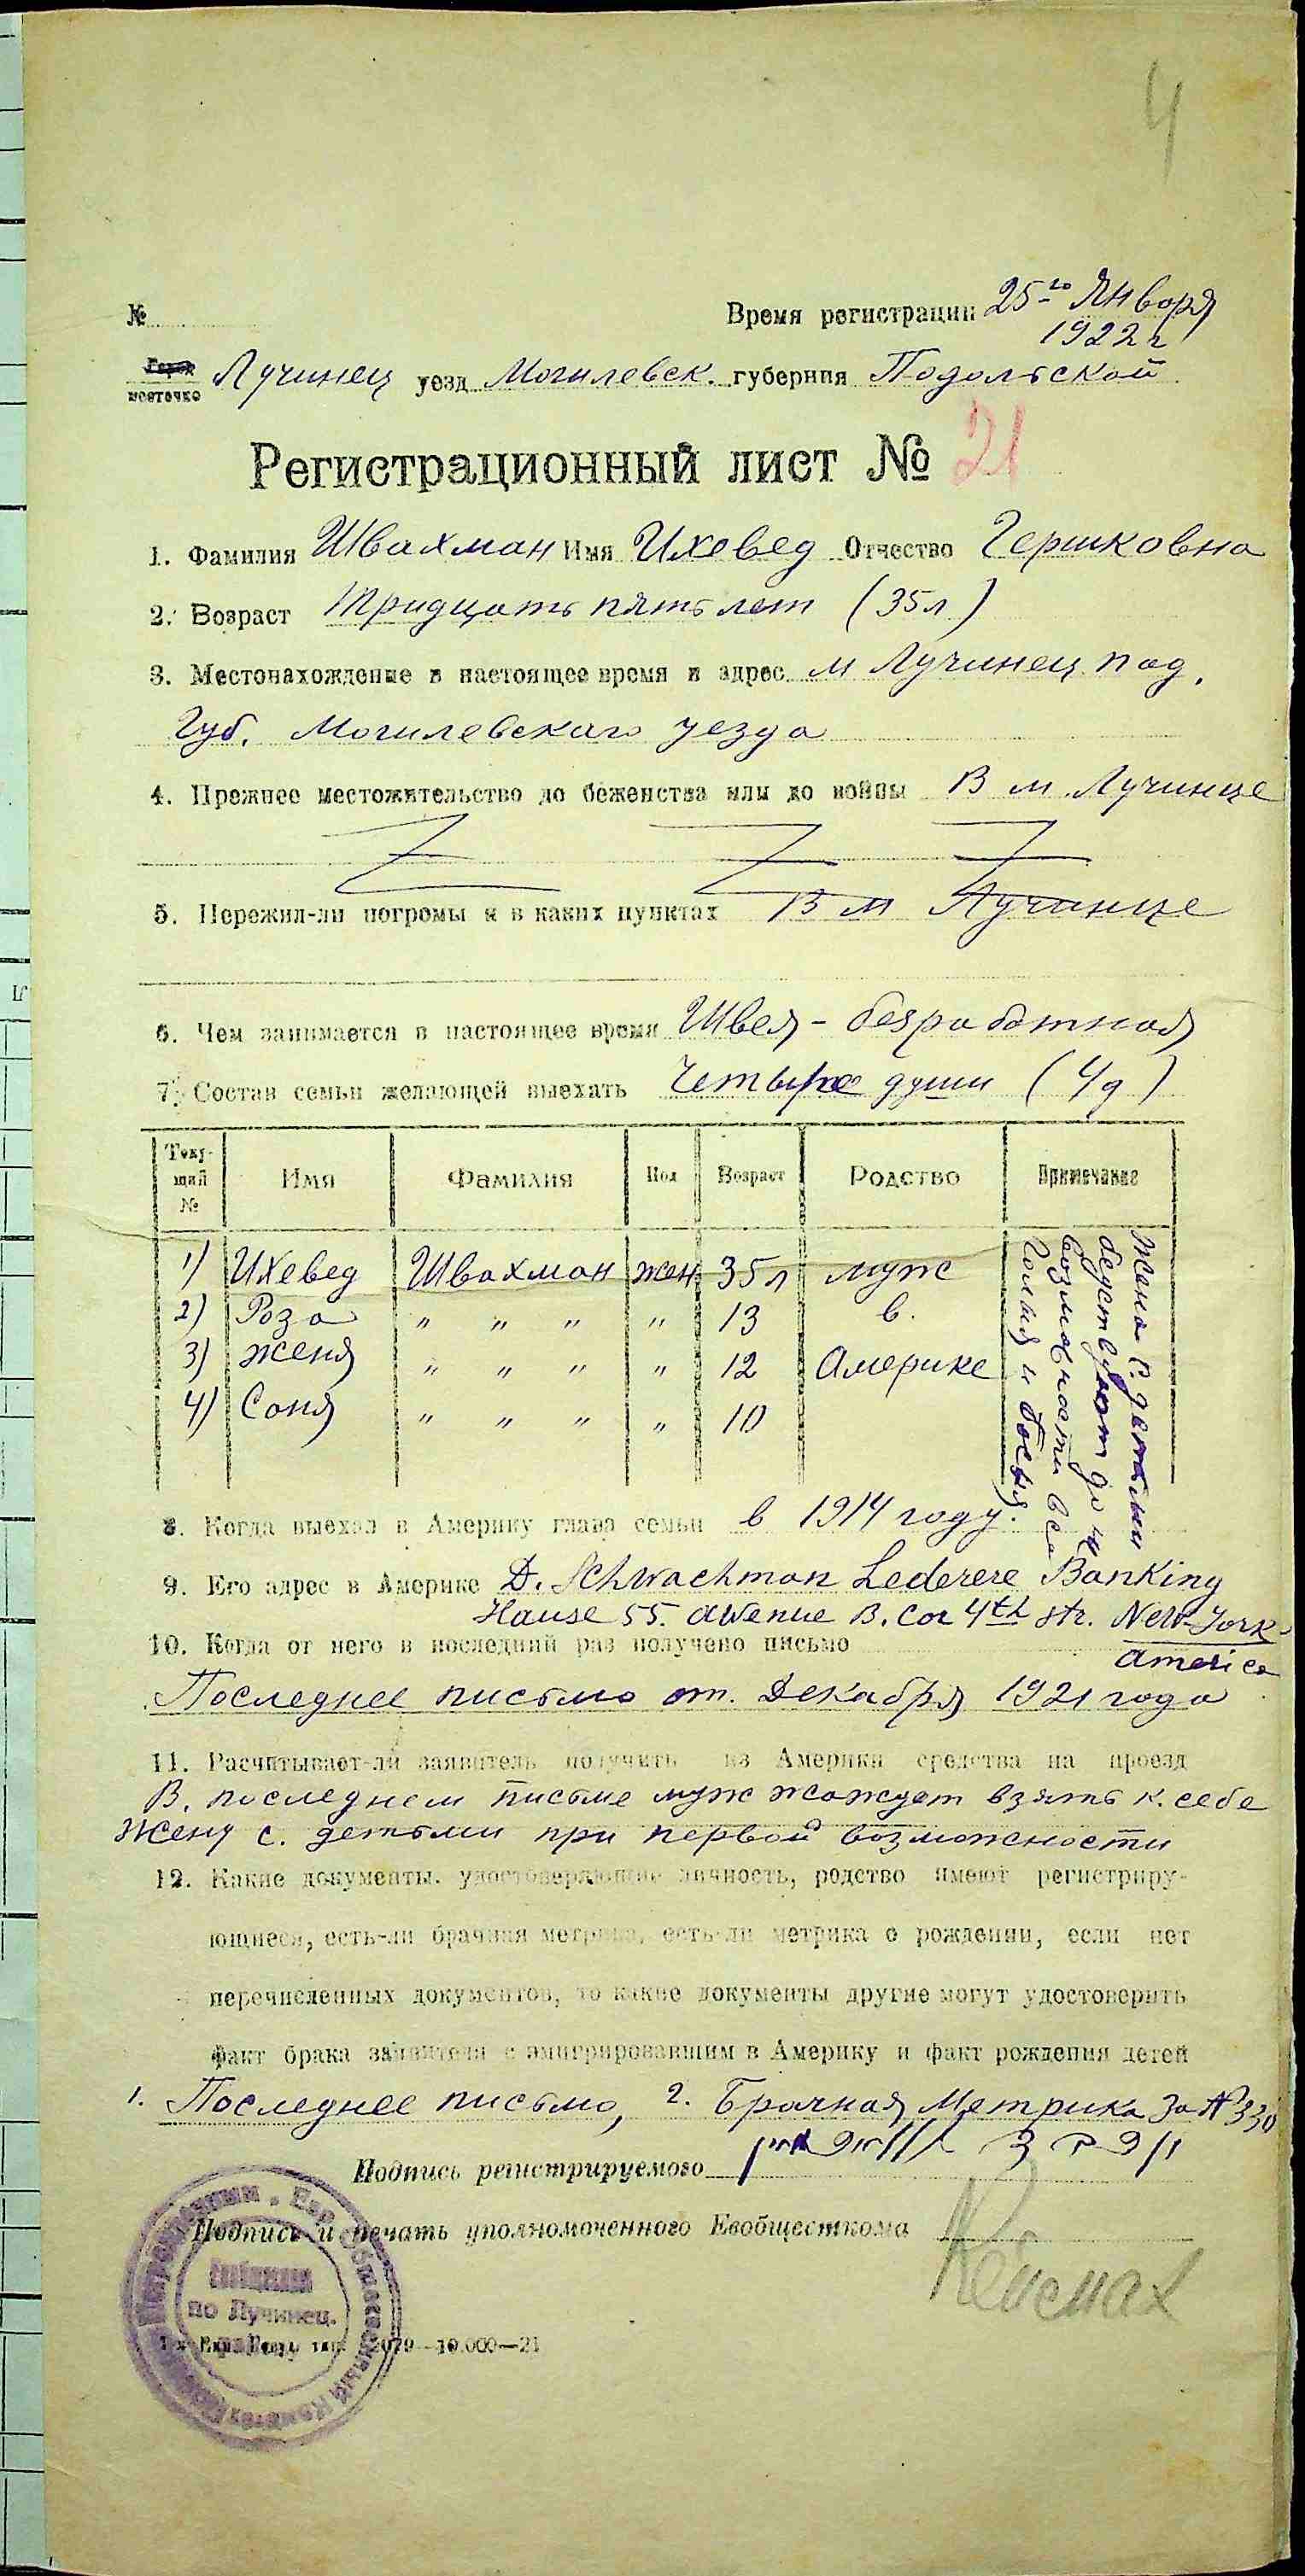 4
№
Время регистрации 25го Января
1922 г
Город
местечко Лучинец уезд Могилевск. губерния Подольской
Регистрационный лист № 21
1. Фамилия Швахман Имя Ихевед Отчество Гершковна
2. Возраст Тридцать пять лет (35 л)
3. Местонахождение в настоящее время и адрес м Лучинец Под.
Губ. Могилевскаго уезда
4. Прежнее местожительство до беженства или до войны В м. Лучинце
5. Пережил-ли погромы и в каких пунктах В м Лучинце
6. Чем занимается в настоящее время Швея - безработная
7. Состав семьи желающей выехать Четыре души (4 д)
Теку-щий № Имя Фамилия Пол Возраст Родство Примечание
1) Ихевед Швахман жен. 35 л муж
2) Роза " " " " 13 в.
3) Женя " " " " 12 Америке
4) Соня " " " " 10
Жена с. детьми
бедствуют до не
возможности все
голыя и босыя.
8. Когда выехал в Америку глава семьи в 1914 году.
9. Его адрес в Америке D. Schwachman Lederere Banking
Hause 55. avenue B. Cor 4th str. New-York
america
10. Когда от него в последний раз получено письмо
Последнее письмо от. Декабря 1921 года
11. Расчитывает-ли заявитель получить из Америки средства на проезд
В. последнем письме муж жаждет взять к. себе
Жену с. детьми при первой возможности
12. Какие документы, удостоверяющие личность, родство имеют регистриру-
ющиеся, есть-ли брачная метрика, есть-ли метрика о рождении, если нет
перечисленных документов, то какие документы другие могут удостоверить
факт брака заявителя с эмигрировавшим в Америку и факт рождения детей
1. Последнее письмо, 2. Брачная Метрика За № 330
Подпись регистрируемого
Подпись и печать уполномоченного Евобщесткома
по Лучинец.
2079—10.000—21